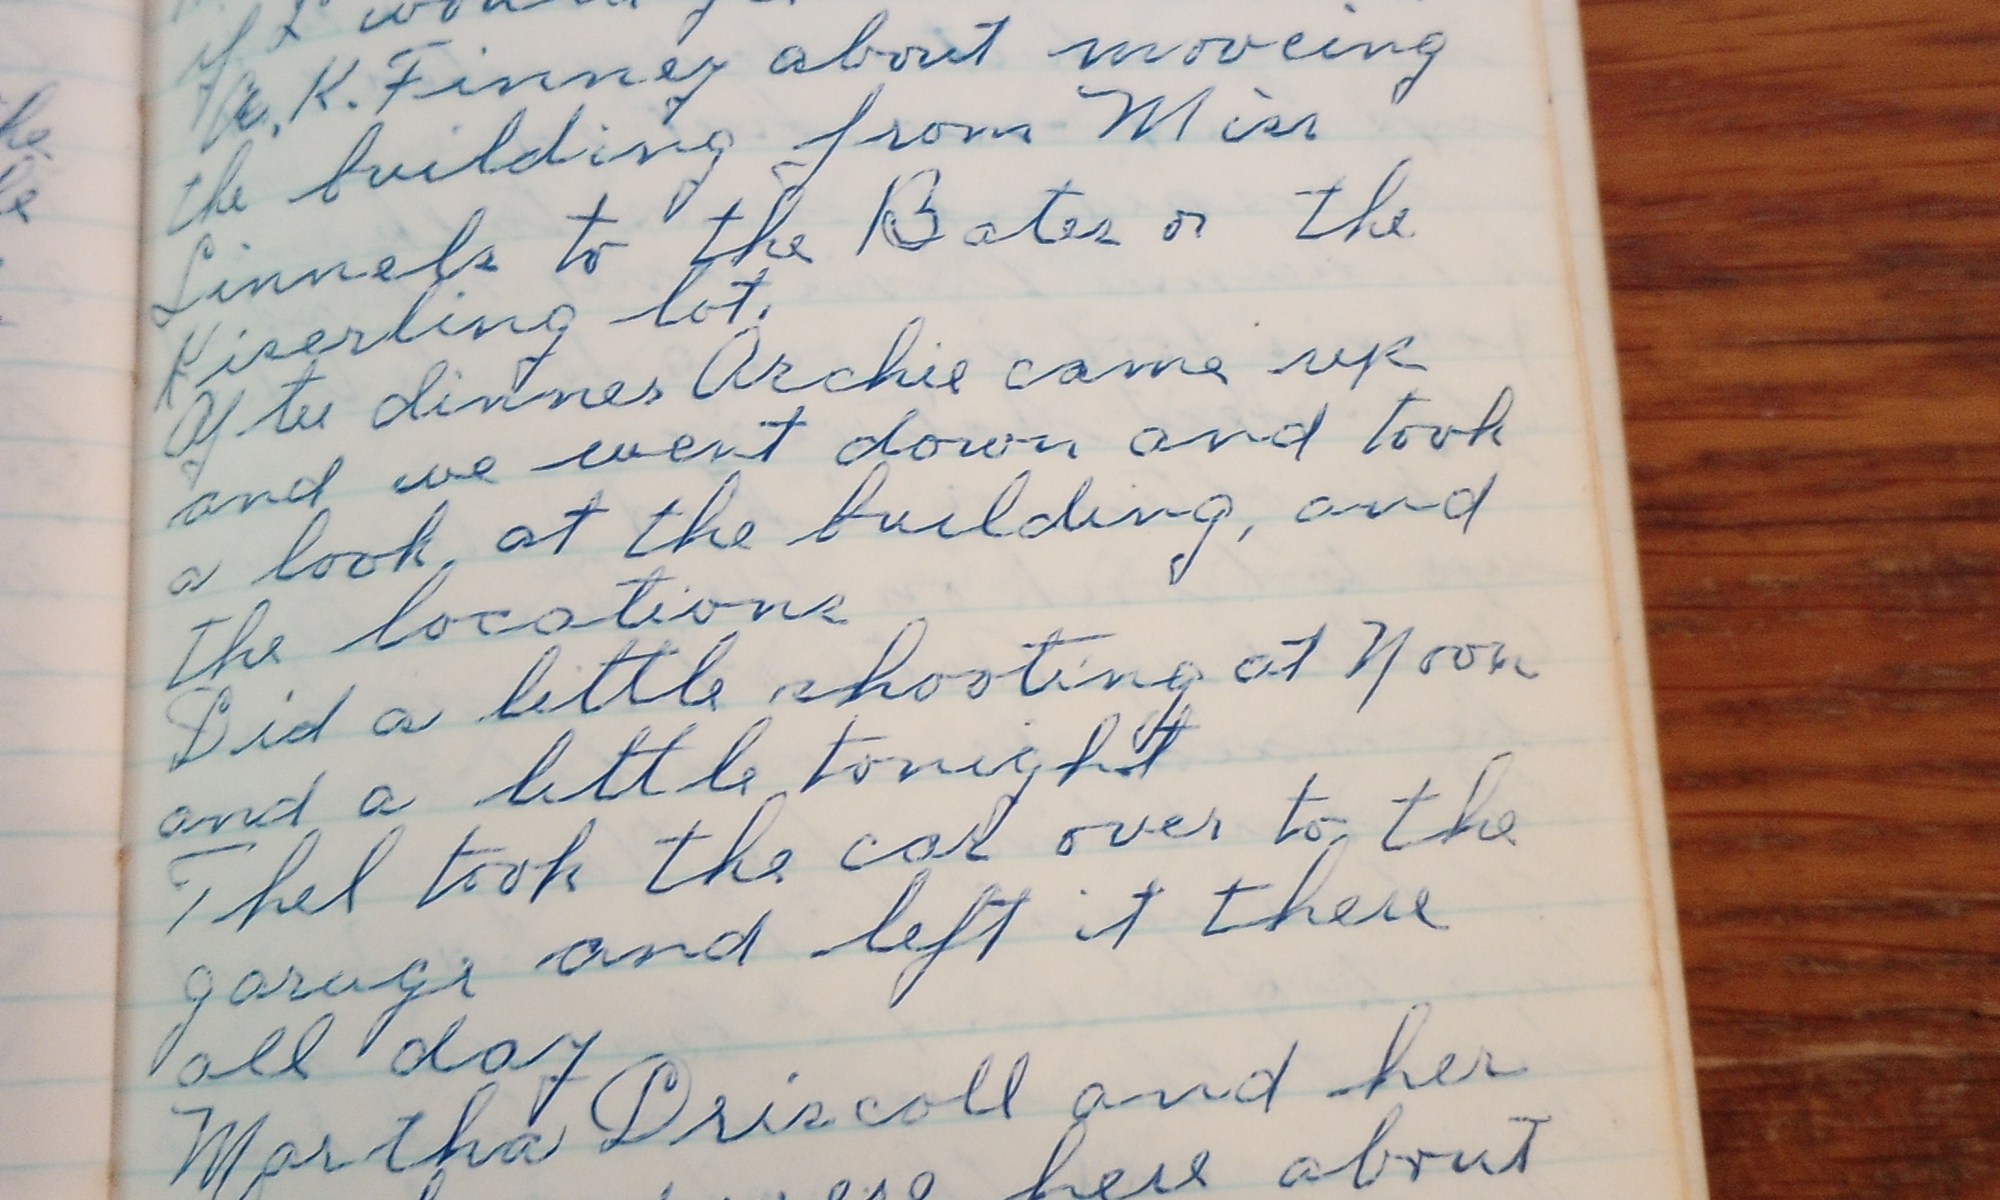 if I would
A. K. Finney about moveing
the building from Miss
Linnels to the Bates or the
Kiserling lot.
After dinner Archie came up
and we went down and took
a look at the building, and
the locations
Did a little shooting at Noon
and a little tonight
Thel took the car over to the
garage and left it there
all day
Martha Driscoll and her
were here about